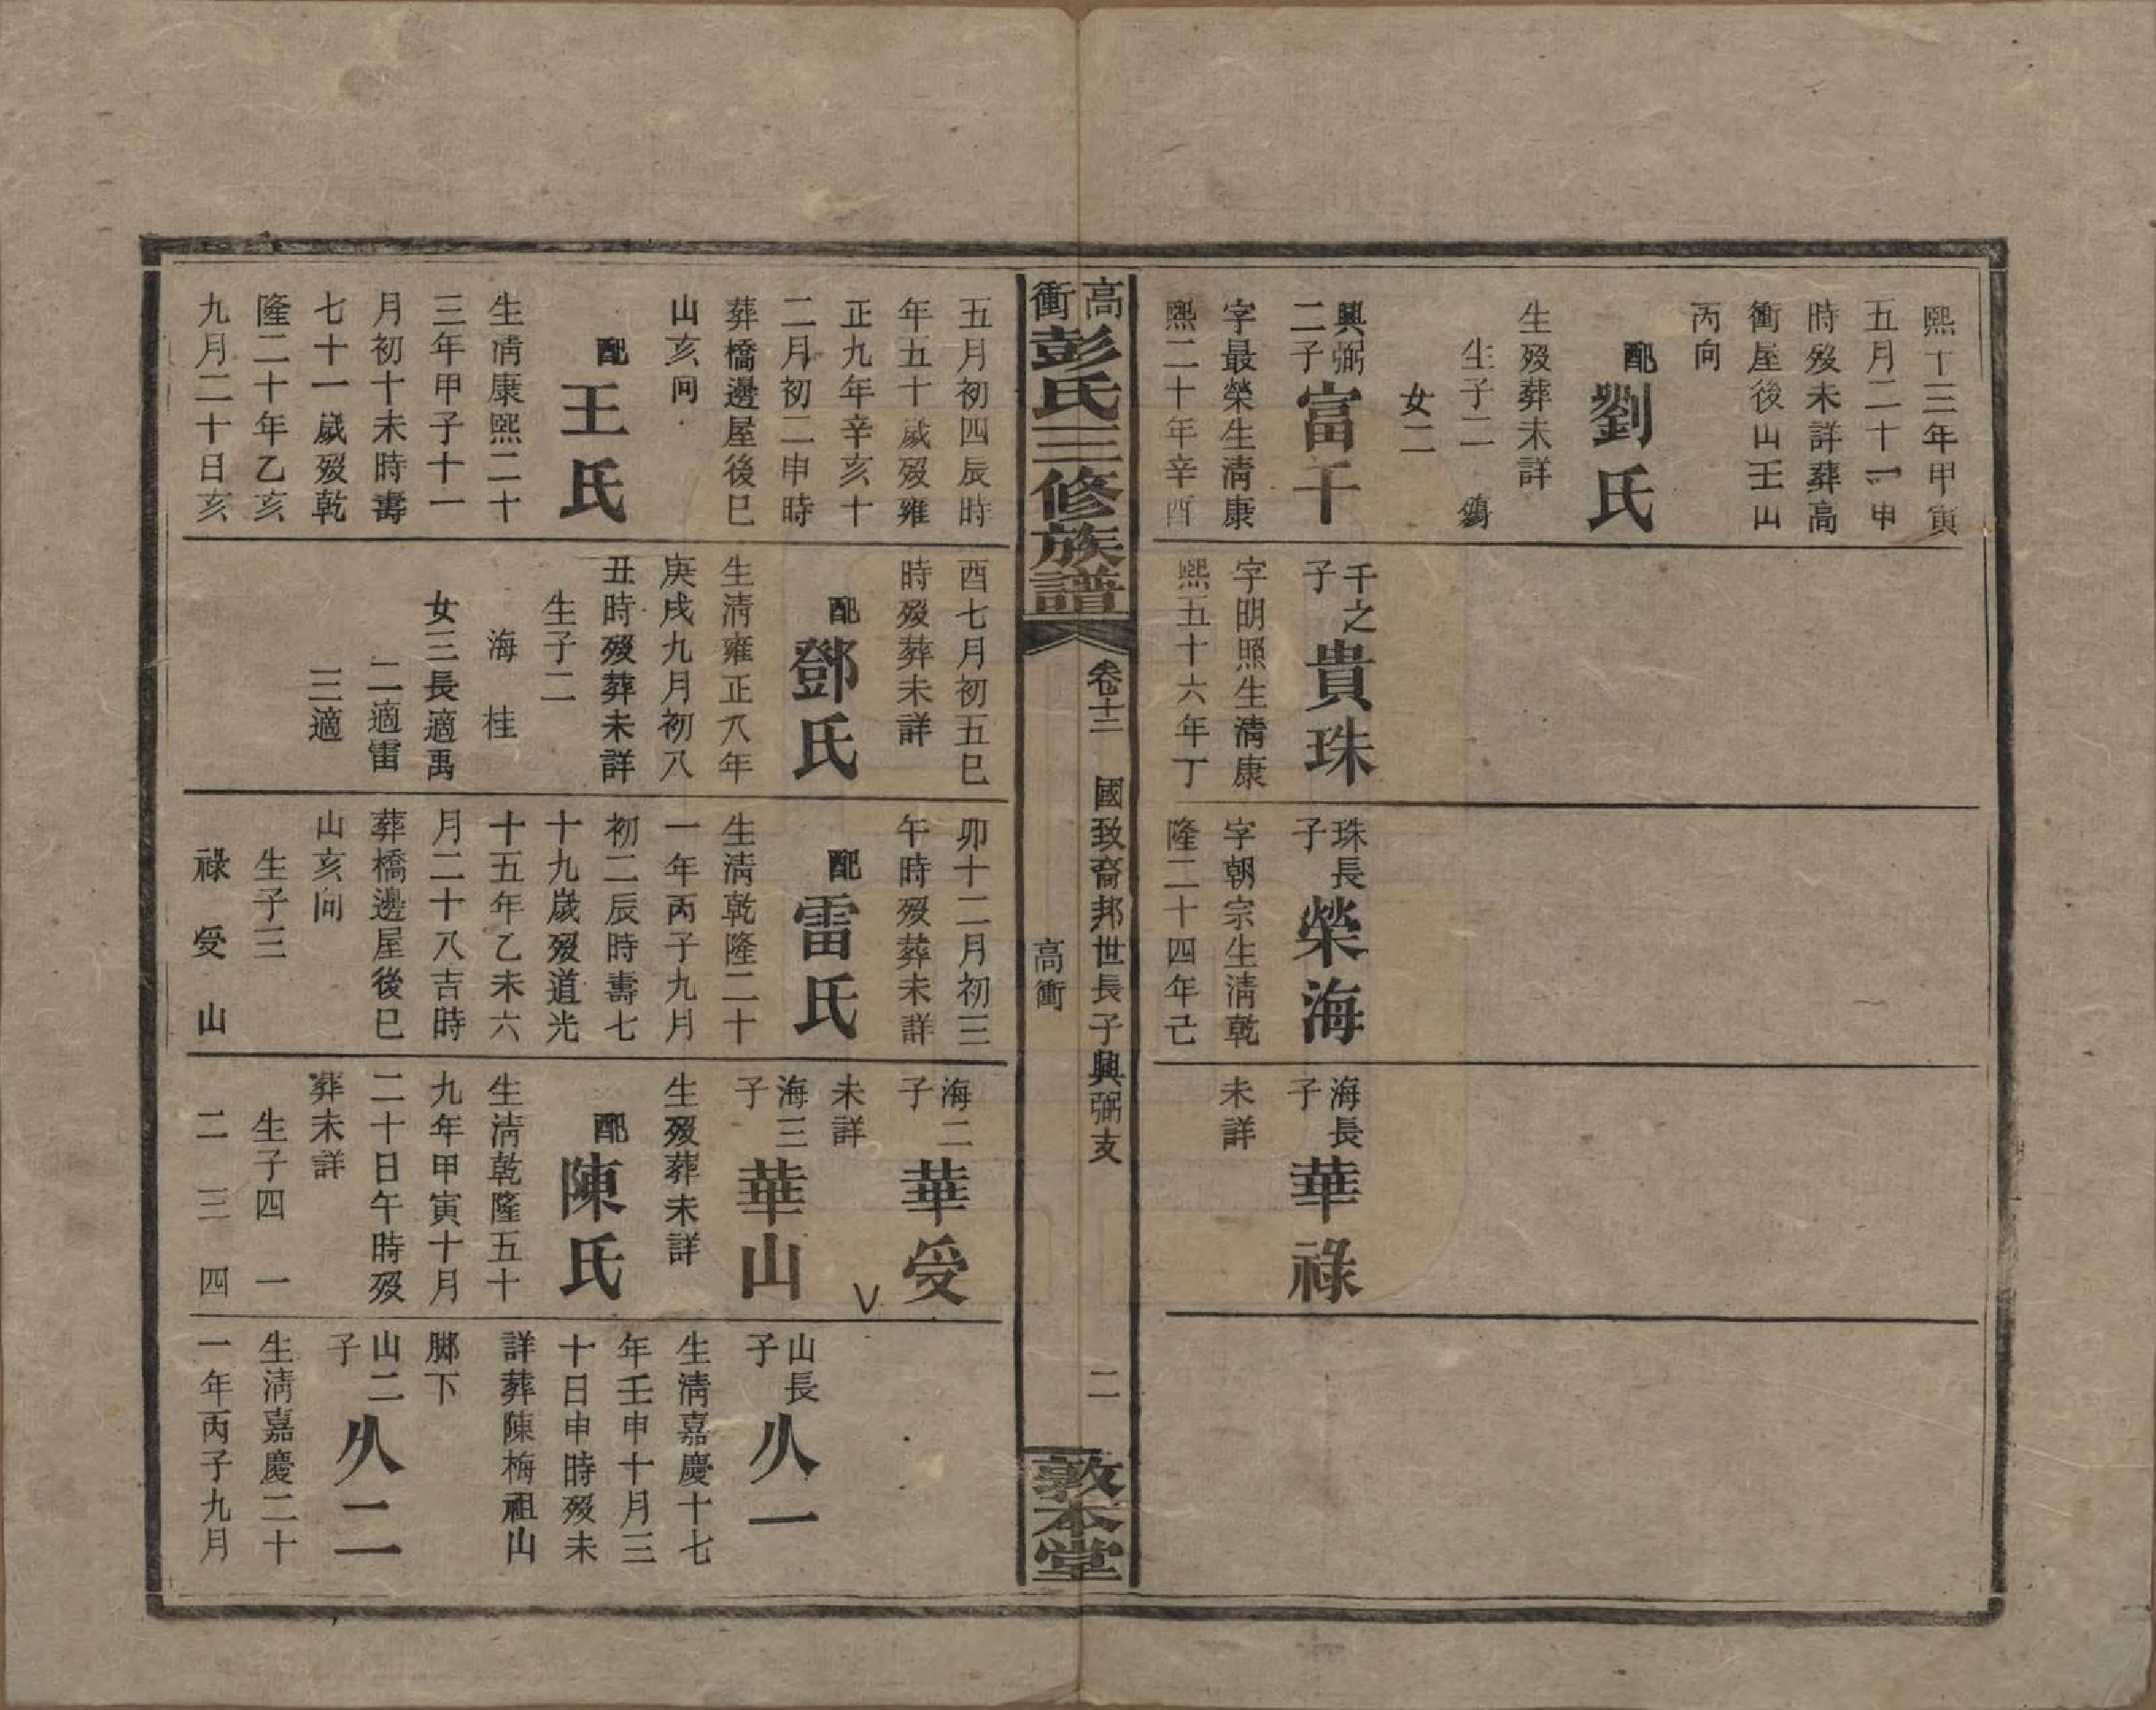 熙十三年甲寅
五月二十一申
時歿未詳葬高
衝屋後山壬山
丙向
配劉氏
生歿葬未詳
生子二
女二
興弼二子富千
字最榮生清康
熙二十年辛酉
千之子貴珠
字明照生清康
熙五十六年丁
珠長子榮海
字朝宗生清乾
隆二十四年己
海長子華祿
未詳
高衝彭氏三修族譜
卷十二
國致裔邦世長子興弼支
高衝
二
敦本堂
五月初四辰時
年五十歲歿雍
正九年辛亥十
二月初二申時
葬橋邊屋後巳
山亥向
配王氏
生清康熙二十
三年甲子十一
月初十未時壽
七十一歲歿乾
隆二十年乙亥
九月二十日亥
酉七月初五巳
時歿葬未詳
配鄧氏
生清雍正八年
庚戌九月初八
丑時歿葬未詳
生子二
海 桂
女三長適禹
二適雷
三適
卯十二月初三
午時歿葬未詳
配雷氏
生清乾隆二十
一年丙子九月
初二辰時壽七
十九歲歿道光
十五年乙未六
月二十八吉時
葬橋邊屋後巳
山亥向
生子三
祿 受 山
海二子華受
未詳
海三子華山
生歿葬未詳
配陳氏
生清乾隆五十
九年甲寅十月
二十日午時歿
葬未詳
生子四 一
二 三 四
山長子火一
生清嘉慶十七
年壬申十月三
十日申時歿未
詳葬陳梅祖山
脚下
山二子火二
生清嘉慶二十
一年丙子九月